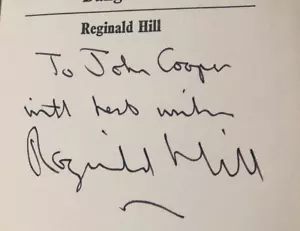 Reginald Hill
To John Cooper
with best wishes
Reginald Hill